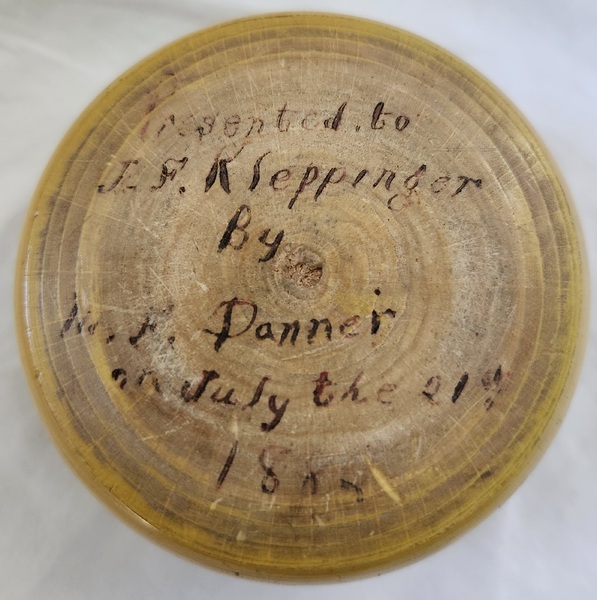 Presented to
J. F. Kleppinger
By
F. Danner
on July the 21
18